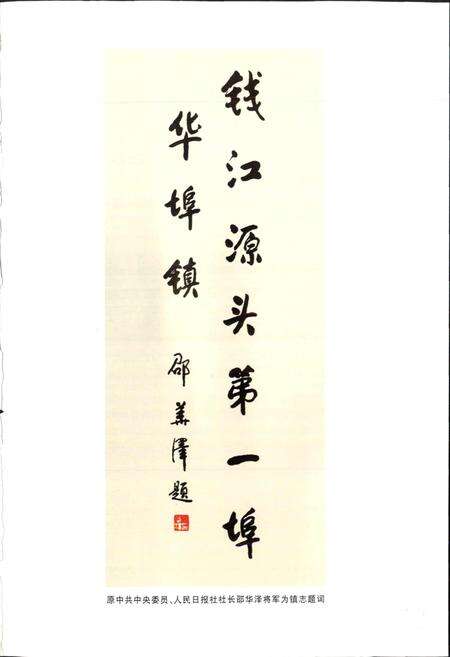 钱江源头第一埠
华埠镇
邵華澤题
原中共中央委员、人民日报社社长邵华泽将军为镇志题词